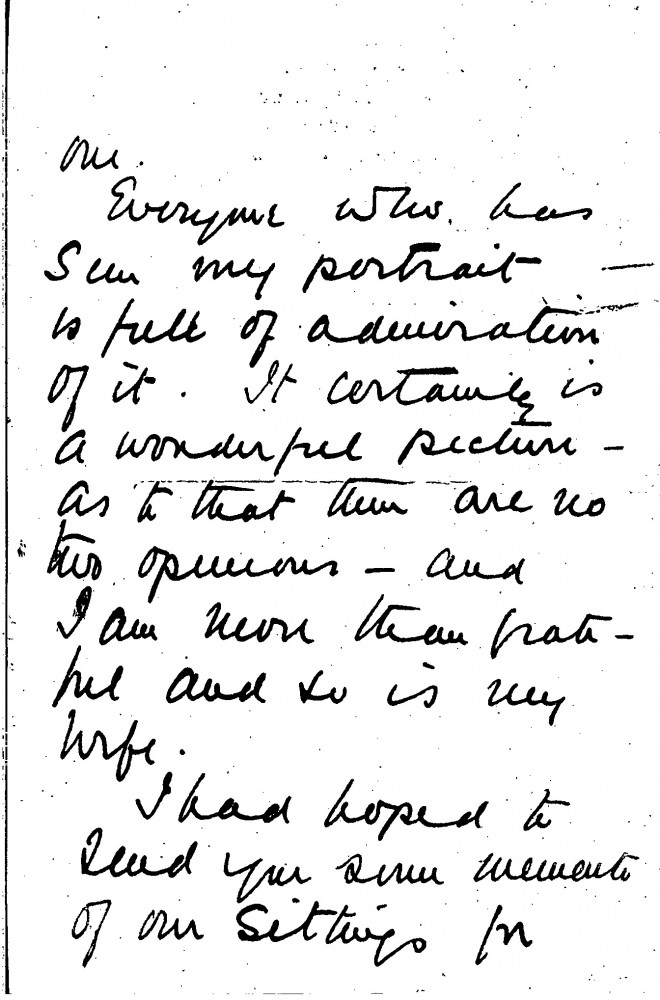 one.
Everyone who has
seen my portrait —
is full of admiration
of it. It certainly is
a wonderful picture –
as to that there are no
two opinions – and
I am more than grate-
ful and so is my
wife.
I had hoped to
send you some memento
of our sittings for